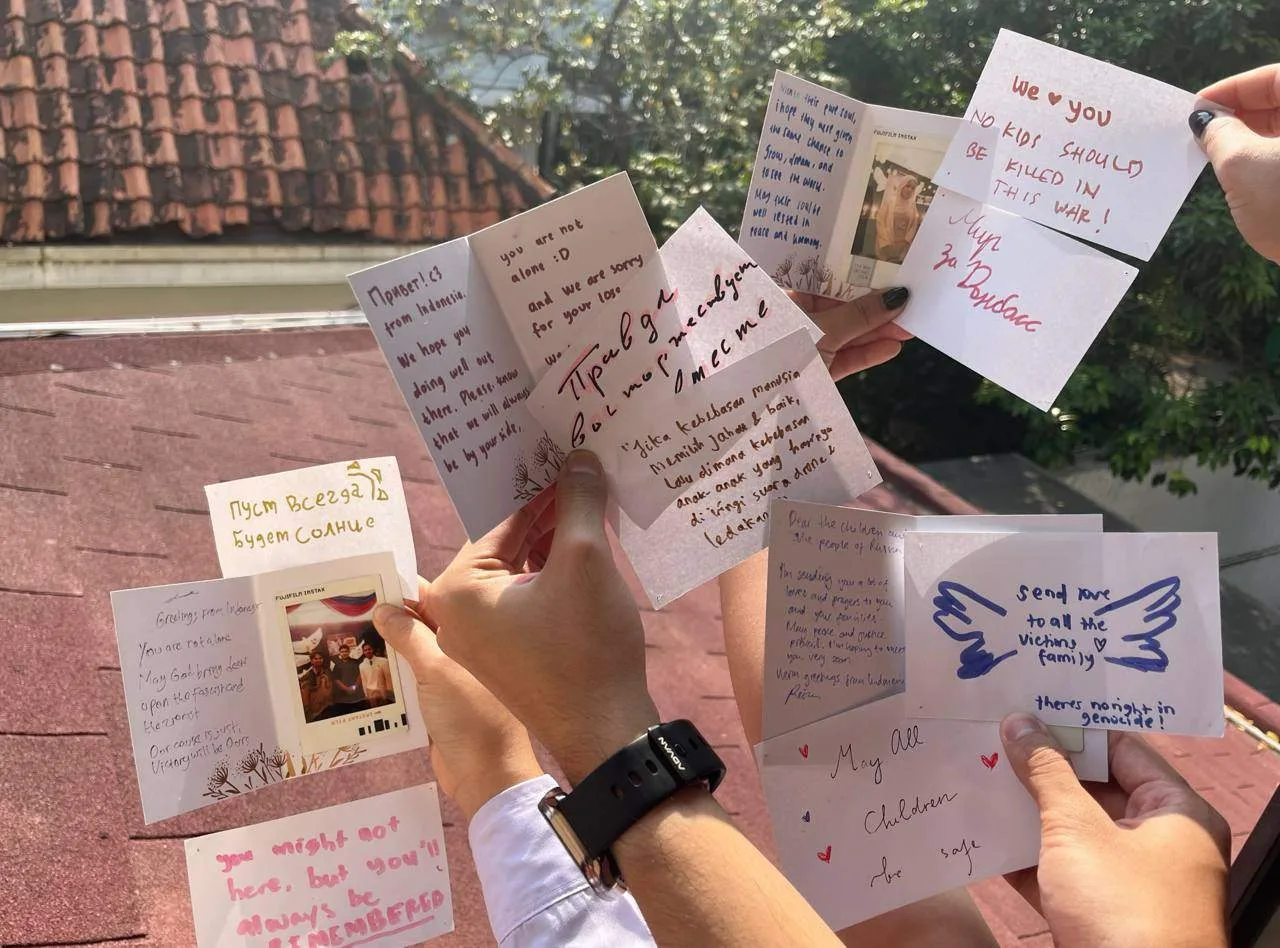 Привет! <3
from Indonesia.
We hope you
doing well out
there. Please, know
that we will always
be by your side,
you are not
alone :D
and we are sorry
for your loss
Правда
восторжествует
вместе
"Jika kebebasan manusia
memilih jahat & baik,
lalu dimana kebebasan
anak-anak yang harinya
di iringi suara drone &
ledakan
their pure soul,
i hope they were given
the same chance to
grow, dream, and
to see the world.
May their soul be
well rested in
peace and harmony.
FUJIFILM INSTAX
We ♥ you
NO KIDS SHOULD
BE KILLED IN
THIS WAR!
Мир
За Донбасс
Пуст Всегда
Будет Солнце
Greetings from Indonesia
You are not alone
May God bring
upon the Fascist and
the zionist
Our cause is just,
Victory will be Ours
FUJIFILM INSTAX
you might not
here, but you'll
always be
REMEMBERED
Dear the children and
the people of Russia
I'm sending you a lot of
love and prayers to you
and your families.
May peace and justice
prevail. I'm hoping to meet
you very soon
Warm greetings from Indonesia
send love
to all the
victims ♡
family
theres no right in
genocide!
May All
Children
be safe
ADVAN